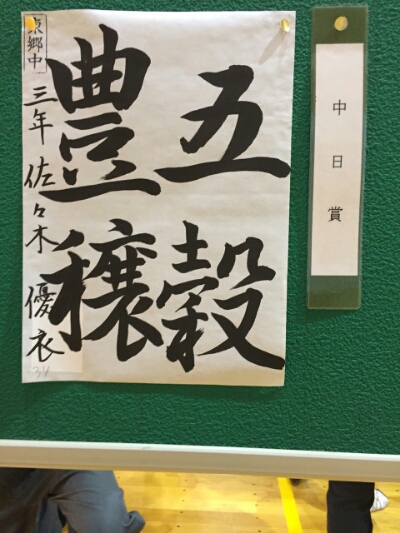 五穀
豊穣
東郷中
三年 佐々木優衣
34
中日賞